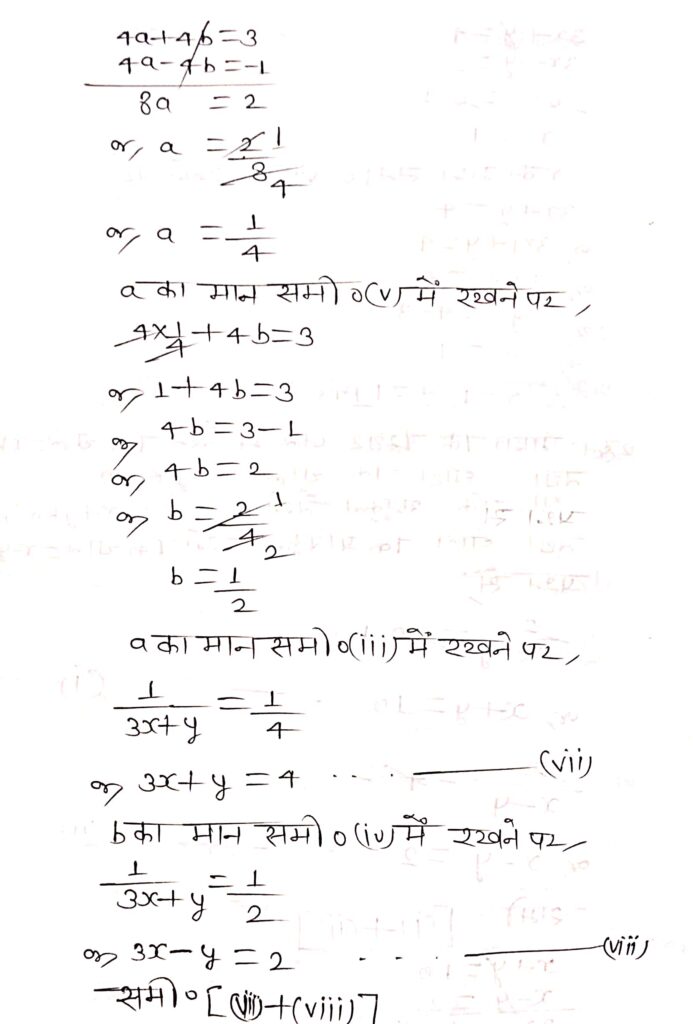 4a+4b=3
4a-4b=-1
8a = 2
or, a = 2/8 1/4
or, a = 1/4
a का मान समी०(v) में रखने पर,
4×1/4+4b=3
or, 1+4b=3
or, 4b=3-1
or, 4b=2
or, b=2/4 1/2
b=1/2
a का मान समी०(iii) में रखने पर,
1/3x+y = 1/4
or, 3x+y=4 .... —(vii)
b का मान समी०(iv) में रखने पर,
1/3x+y = 1/2
or, 3x-y=2 .... —(viii)
समी०[(vii)+(viii)]